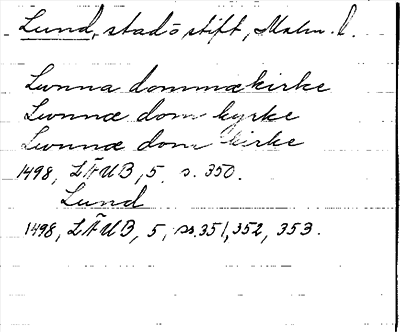 Lund, stad o stift, Malm. l.
Lwnna dommækirke
Lwnnæ dom kyrke
Lwnnæ dom kirke
1498, LÄUB, 5, s. 350.
Lund
1498, LÄUB, 5, ss. 351, 352, 353.